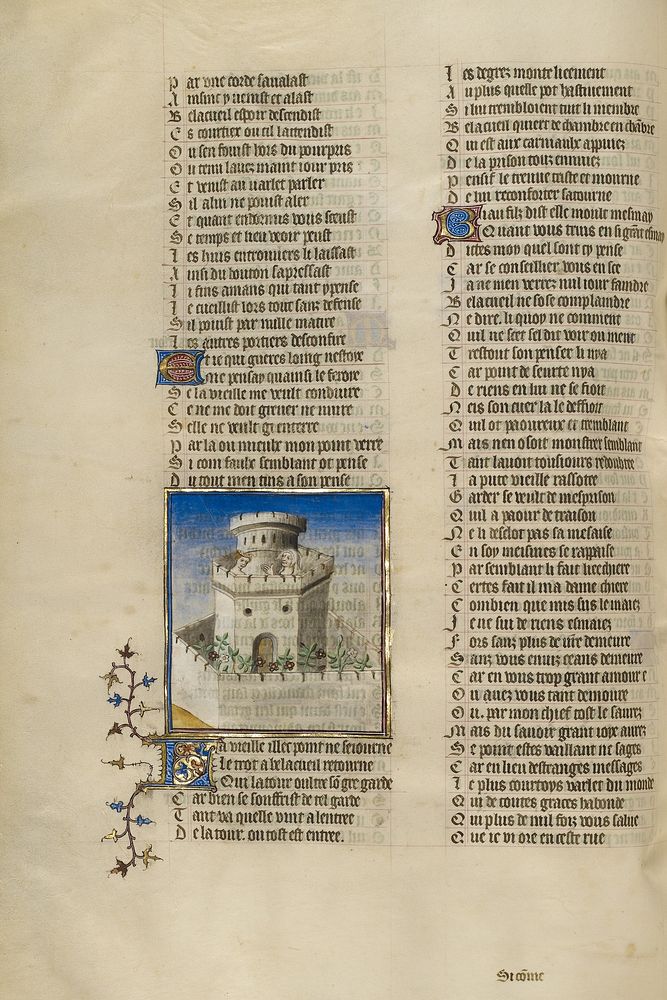 Par une corde savalast
Ainsinc y venist et alast
Belacueil espoir descendist
Es courtiex ou cil latendist
Ou sen fouist hors du pourpris
Ou tenu lavez maint iour pris
Et venist au varlet parler
Sil a lui ne pouist aler
Et quant endormis vous sceust
Se temps et lieu veoir peust
Les huis entrouvers li laissast
Ainsi du bouton sapressast
Li fins amans qui tant y pense
Le cueillist lors tout sanz defense
Sil pouist par nulle matire
Les autres portiers desconfire
Et ie qui gueres loing nestoye
Me pensay quainsi le feroye
Se la vieille me veult conduire
Ce ne me doit grever ne nuire
Selle ne veult gi enterre
Par la ou mieulx mon point verre
Si com faulx semblant ot pense
Du tout men tins a son pense
La vieille illec point ne seiourne
Le trot a belacueil retourne
Qui la tour oultre son gre garde
Car bien se souffrist de tel garde
Tant va quelle vint a lentree
De la tour. ou tost est entree.
Les degrez monte lieement
Au plus quelle pot hastivement
Si lui trembloient tuit li membre
Belacueil quiert de chambre en chambre
Qui est aux carniaulx appuiez
De la prison touz ennuiez
Pensif le treuve triste et mourne
De lui reconforter satourne
Biau filz dist elle moult mesmay
Quant vous truis en si grant esmay
Dictes moy quel sont cy pense
Car se conseillier vous en sce
Ja ne men verrez nul iour faindre
Belacueil ne sose complaindre
Ne dire. li quoy ne comment
Quil ne scet sel dit voir ou ment
Trestout son penser li nya
Car point de seurte nya
De riens en lui ne se fioit
Neis son cuer la le deffioit
Quil ot paoureux et tremblant
Mais nen osoit monstrer semblant
Tant lavoit tousiours redoubte
La pute vieille rassotee
Garder se veult de mesprison
Quil a paour de traison
Ne li desclot pas sa mesaise
En soy meismes se rappaise
Par semblant li fait lie chiere
Certes fait il ma dame chiere
Combien que mis sus le maiez
Je ne sui de riens esmaiez
Fors sanz plus de vostre demeure
Sanz vous enuiz ceans demeure
Car en vous trop grant amour e
Ou avez vous tant demoure
Ou. par mon chief tost le saurez
Mais du savoir grant ioye aurez
Se point estes vaillant ne sages
Car en lieu destranges messages
Le plus courtoys varlet du monde
Qui de toutes graces habonde
Qui plus de mil foiz vous salue
Que ie vi ore en ceste rue
Si come